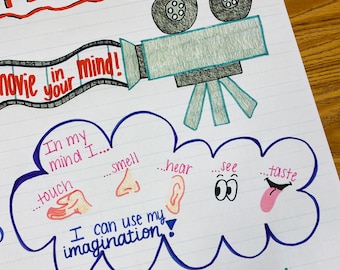 movie in your mind!
In my
mind I...
...touch ...smell ...hear ...see ...taste
I can use my
imagination!